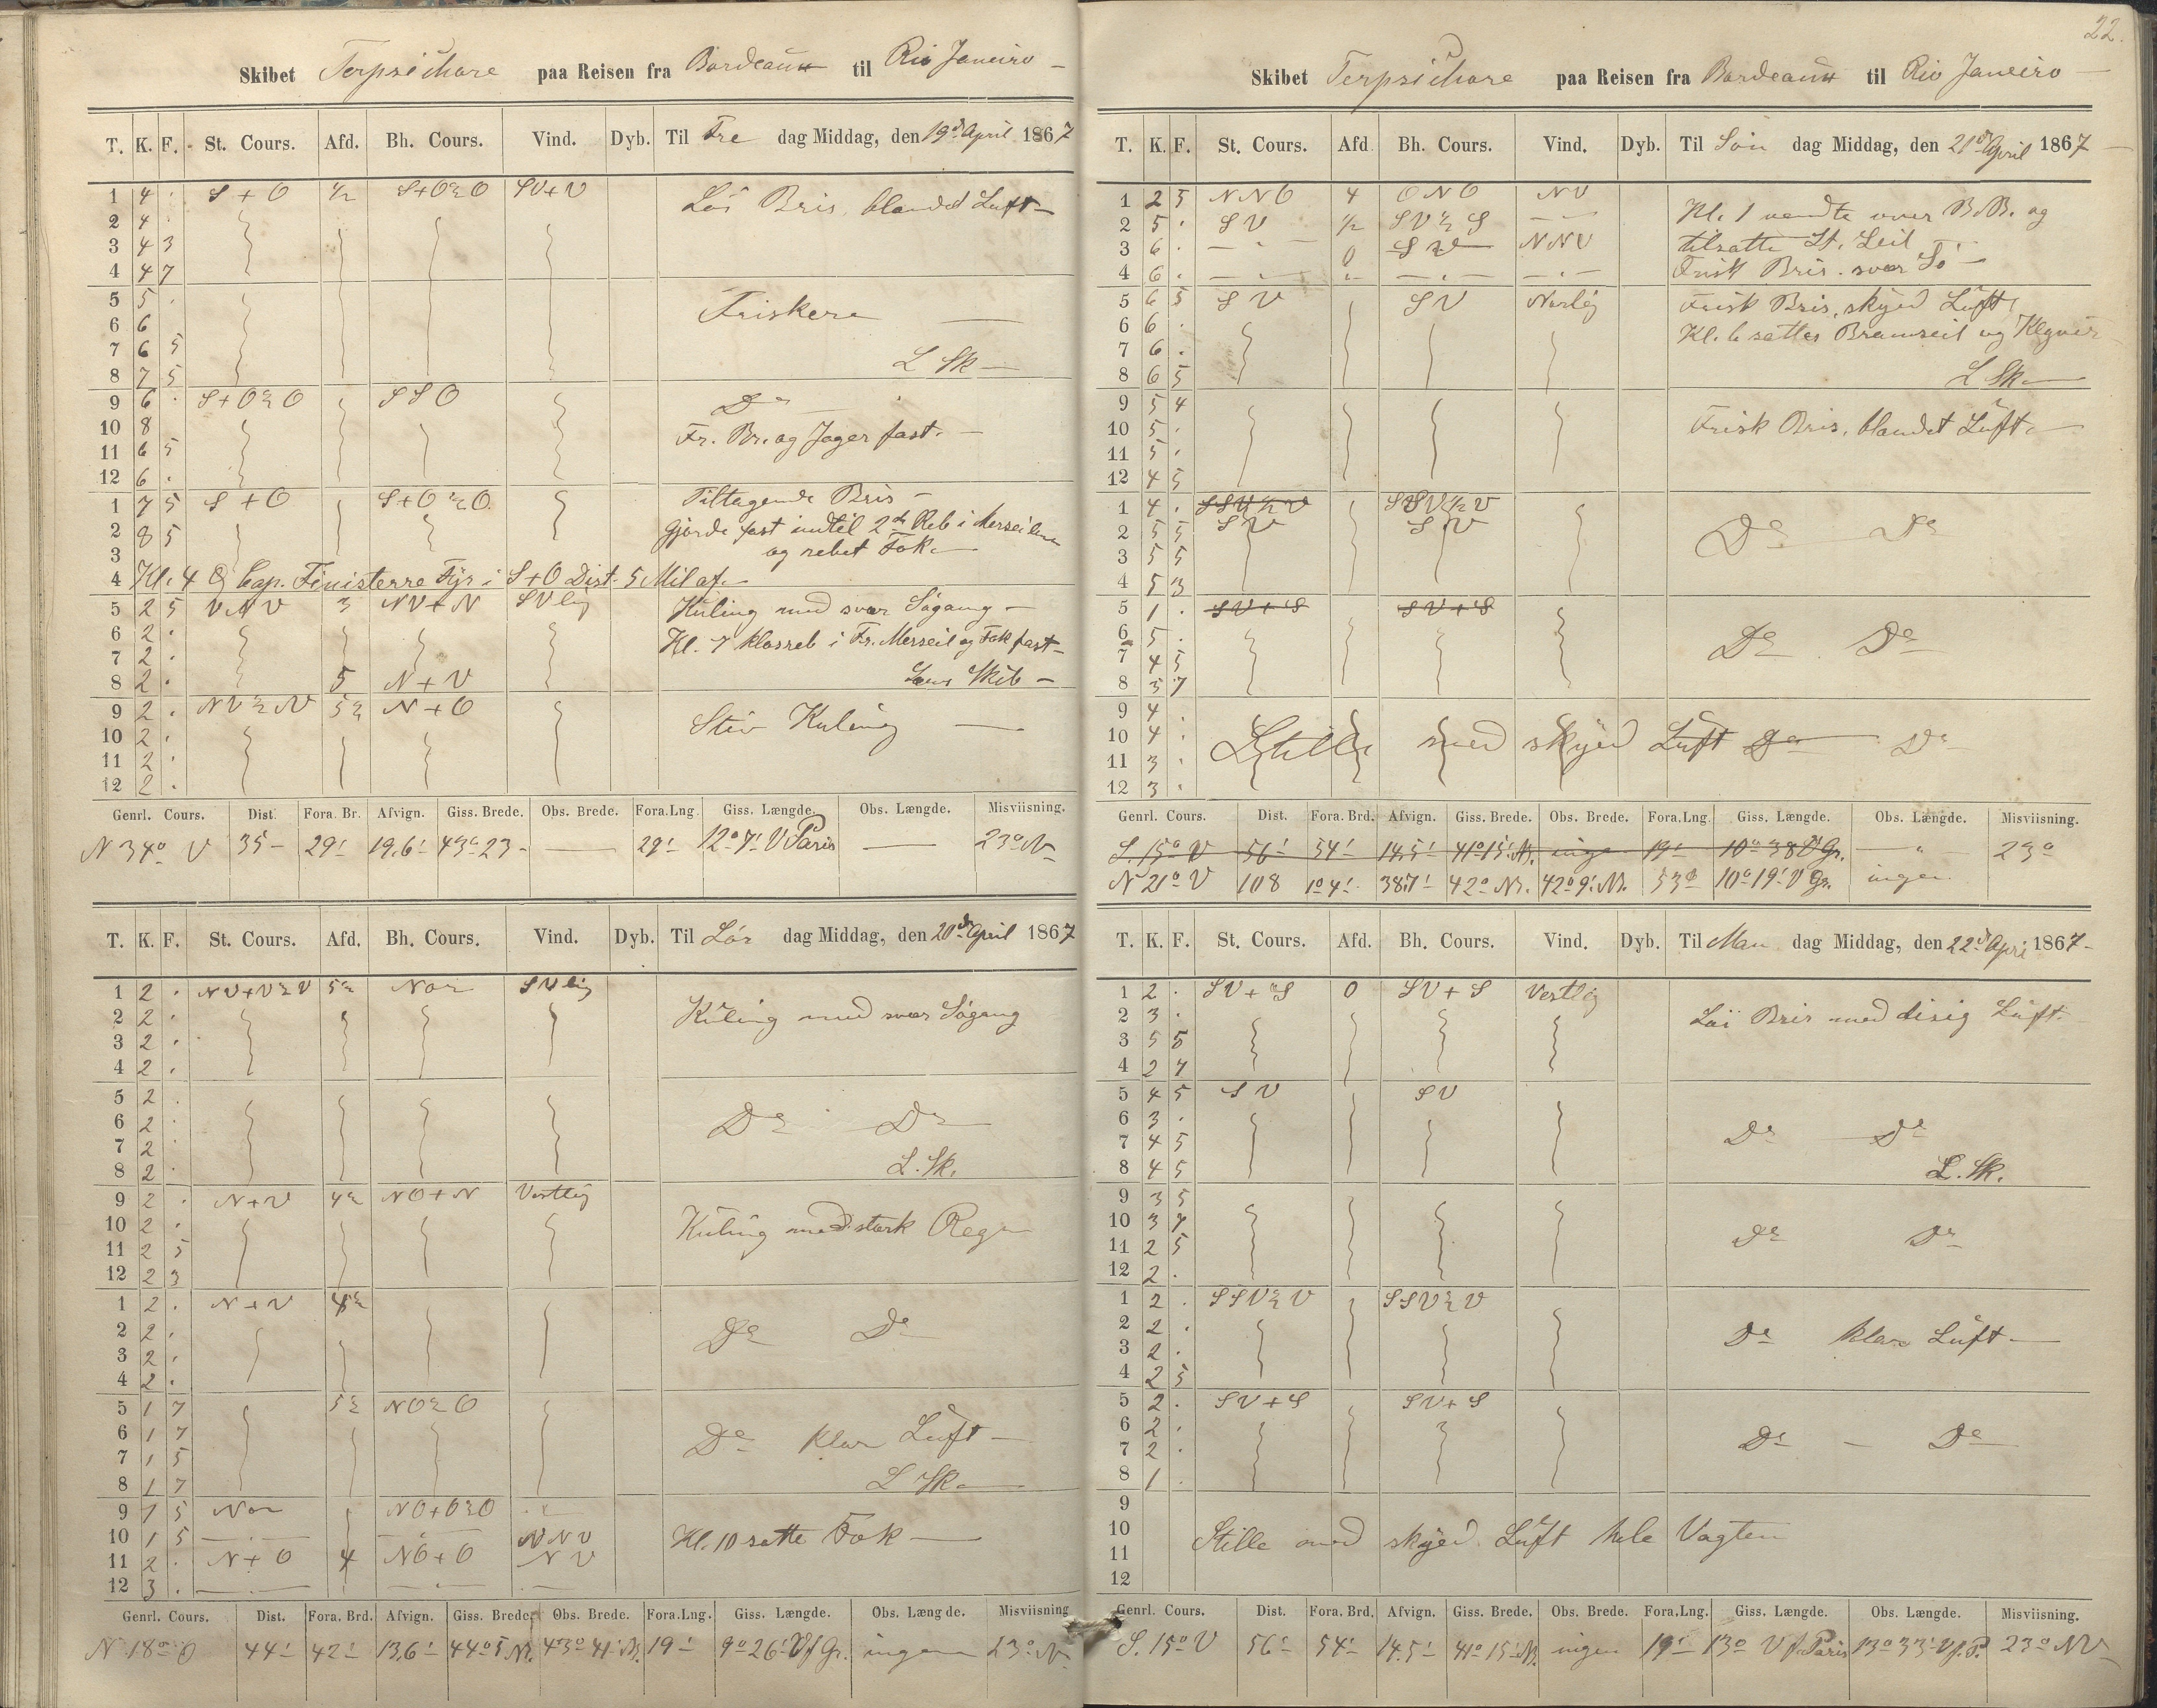 Skibet Terpsichore paa Reisen fra Bordeaux til Rio Janeiro
T. K. F. St. Cours. Afd. Bh. Cours. Vind. Dyb. Til Fre dag Middag, den 19de April 1867
1 4 . S + O ½ S+O½O SV+V Löi Bris, blandet Luft
2 4 .
3 4 3
4 4 7
5 5 . Friskere
6 6
7 6 5
8 7 5 L Sk
9 6 . S+O½O SSO Do
10 8 Fr. Br. og Jager fast.
11 6 5
12 6 .
1 7 5 S + O S+O½O Tiltagende Bris
2 8 5 gjorde fast indtil 2de Reb i Merseilene
3 og rebet Fok
4 Kl. 4 Cap. Finisterre Fyr i S+O Dist. 5 Mil af.
5 2 5 VNV 3 NV+N SVlig Kuling med svær Sögang
6 2 .
7 2 . Kl. 7 klosreb i Fr. Merseil og Fok fast
8 2 . 5 N+V Lens Skib
9 2 . NV½N 5½ N+O Stiv Kuling
10 2 .
11 2 .
12 2 .
Genrl. Cours. Dist. Fora. Br. Afvign. Giss. Brede. Obs. Brede. Fora.Lng Giss. Længde. Obs. Længde. Misviisning.
N 34° V 35 29' 19,6' 43° 23 29' 12° 7' V Paris 23° N
T. K. F. St. Cours. Afd. Bh. Cours. Vind. Dyb. Til Lör dag Middag, den 20de April 1867
1 2 . NV+V½V 5½ Nor SVlig Kuling med svær Sögang
2 2 .
3 2 .
4 2 .
5 2 .
6 2 . Do Do
7 2
8 2 . L. Sk.
9 2 . N+V 4½ NO+N Vestlig
10 2 . Kuling med stærk Regn
11 2 5
12 2 3
1 2 . N+V 4½
2 2 . Do Do
3 2 .
4 2 .
5 1 7 5½ NO½O
6 1 7 Do klar Luft
7 1 5
8 1 7 L Sk
9 1 5 Nor NO+O½O
10 1 5 NNV Kl. 10 satte Fok
11 2 . N+O 4 NO+O NV
12 3 .
Genrl. Cours. Dist. Fora. Brd. Afvign. Giss. Brede. Obs. Brede. Fora.Lng. Giss. Længde. Obs. Længde. Misviisning
N 18° O 44' 42' 13,6' 44° 5' N. 43° 41' N. 19' 9° 26' V f Gr. ingen 23° N
22.
Skibet Terpsichore paa Reisen fra Bordeaux til Rio Janeiro
T. K. F. St. Cours. Afd Bh. Cours. Vind. Dyb. Til Sön dag Middag, den 21de April 1867
1 2 5 NNO 4 ONO NV Kl. 1 vendte over B.B. og
2 5 . SV ½ SV½S
3 6 . 0 NNV tilsatte St. Seil
4 6 . Frisk Bris. svær Sö
5 6 5 SV SV Norlig Frisk Bris, skyed Luft
6 6 . Kl. 6 sattes Bramseil og
7 6 .
8 6 5 L Sk
9 5 4
10 5 . Frisk Bris, blandet Luft
11 5 .
12 4 5
1 4 . SSV½V SSV½V
2 5 5 SV SV Do Do
3 5 5
4 5 3
5 1 . SV+S SV+S
6 5 . Do Do
7 4 5
8 3 7
9 4
10 4 . Stille med skyed Luft Do Do
11 3 .
12 3 .
Genrl. Cours. Dist. Fora. Brd. Afvign. Giss. Brede. Obs. Brede. Fora.Lng. Giss. Længde. Obs. Længde. Misviisning.
S. 15° V 56' 54' 14,5' 41° 15' N. ingen 19' 10° 38' V Gr. " 23°
N 21° V 108 1° 4' 38,7' 42° N. 42° 9' N. 53' 10° 19' V Gr. ingen
T. K. F. St. Cours. Afd. Bh. Cours. Vind. Dyb. Til Man dag Middag, den 22de Apri 1867
1 2 . SV+S 0 SV+S Vestlig
2 3 . Löi Bris med disig Luft
3 5 5
4 2 7
5 4 5 SV SV
6 3 .
7 4 5 Do Do
8 4 5 L. Sk.
9 3 5
10 3 7 Do Do
11 2 5
12 2 .
1 2 . SSV½V SSV½V
2 2 . Do klar Luft
3 2 .
4 2 5
5 2 . SV+S SV+S
6 2 . Do Do
7 2 .
8 1 .
9
10 Stille med skyed Luft hele Vagten
11
12
Genrl. Cours. Dist. Fora. Brd. Afvign. Giss. Brede. Obs. Brede. Fora.Lng. Giss. Længde. Obs. Længde. Misviisning.
S. 15° V 56' 54' 14,5' 41° 15' N. ingen 19' 13° V f. Paris 13° 33' V f. P. 23° NV